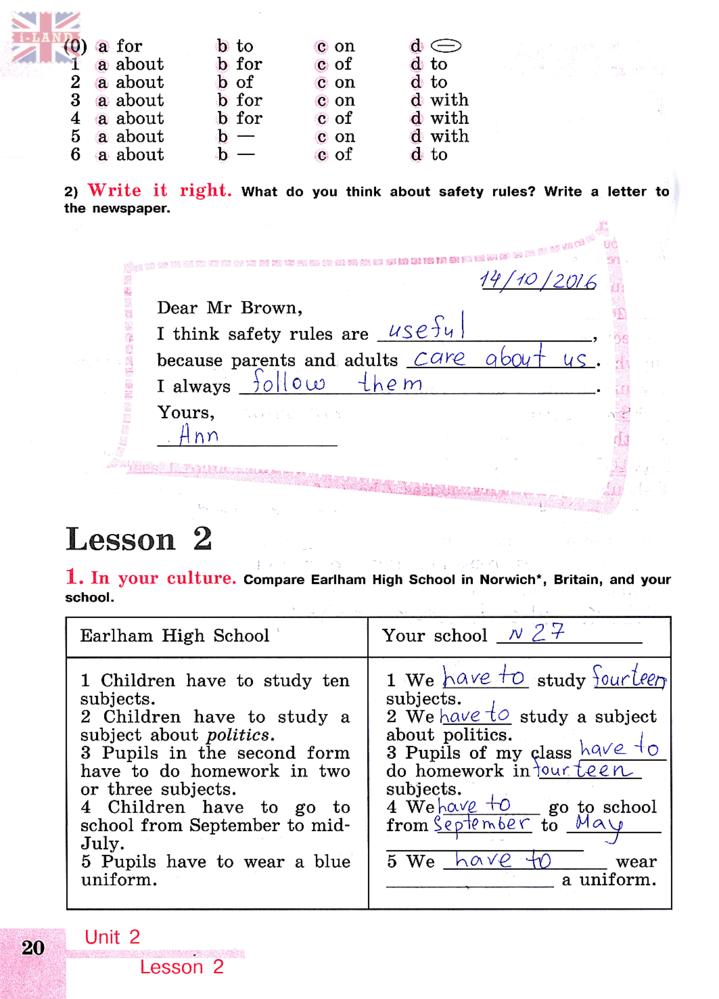 i-LAND
(0) a for b to c on d —
1 a about b for c of d to
2 a about b of c on d to
3 a about b for c on d with
4 a about b for c of d with
5 a about b — c on d with
6 a about b — c of d to
2) Write it right. What do you think about safety rules? Write a letter to
the newspaper.
14/10/2016
Dear Mr Brown,
I think safety rules are useful,
because parents and adults care about us.
I always follow them.
Yours,
Ann
Lesson 2
1. In your culture. Compare Earlham High School in Norwich*, Britain, and your
school.
Earlham High School
1 Children have to study ten
subjects.
2 Children have to study a
subject about politics.
3 Pupils in the second form
have to do homework in two
or three subjects.
4 Children have to go to
school from September to mid-
July.
5 Pupils have to wear a blue
uniform.
Your school N 27
1 We have to study fourteen
subjects.
2 We have to study a subject
about politics.
3 Pupils of my class have to
do homework in fourteen
subjects.
4 We have to go to school
from September to May
5 We have to wear
a uniform.
20
Unit 2
Lesson 2